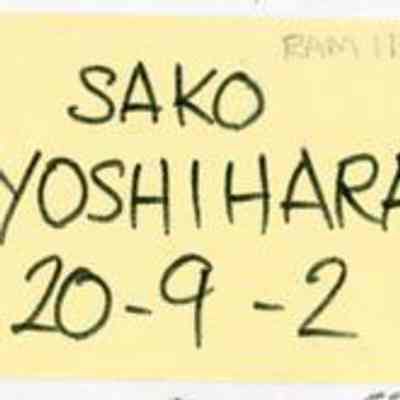 RAM 11
SAKO
YOSHIHARA
20-9-2